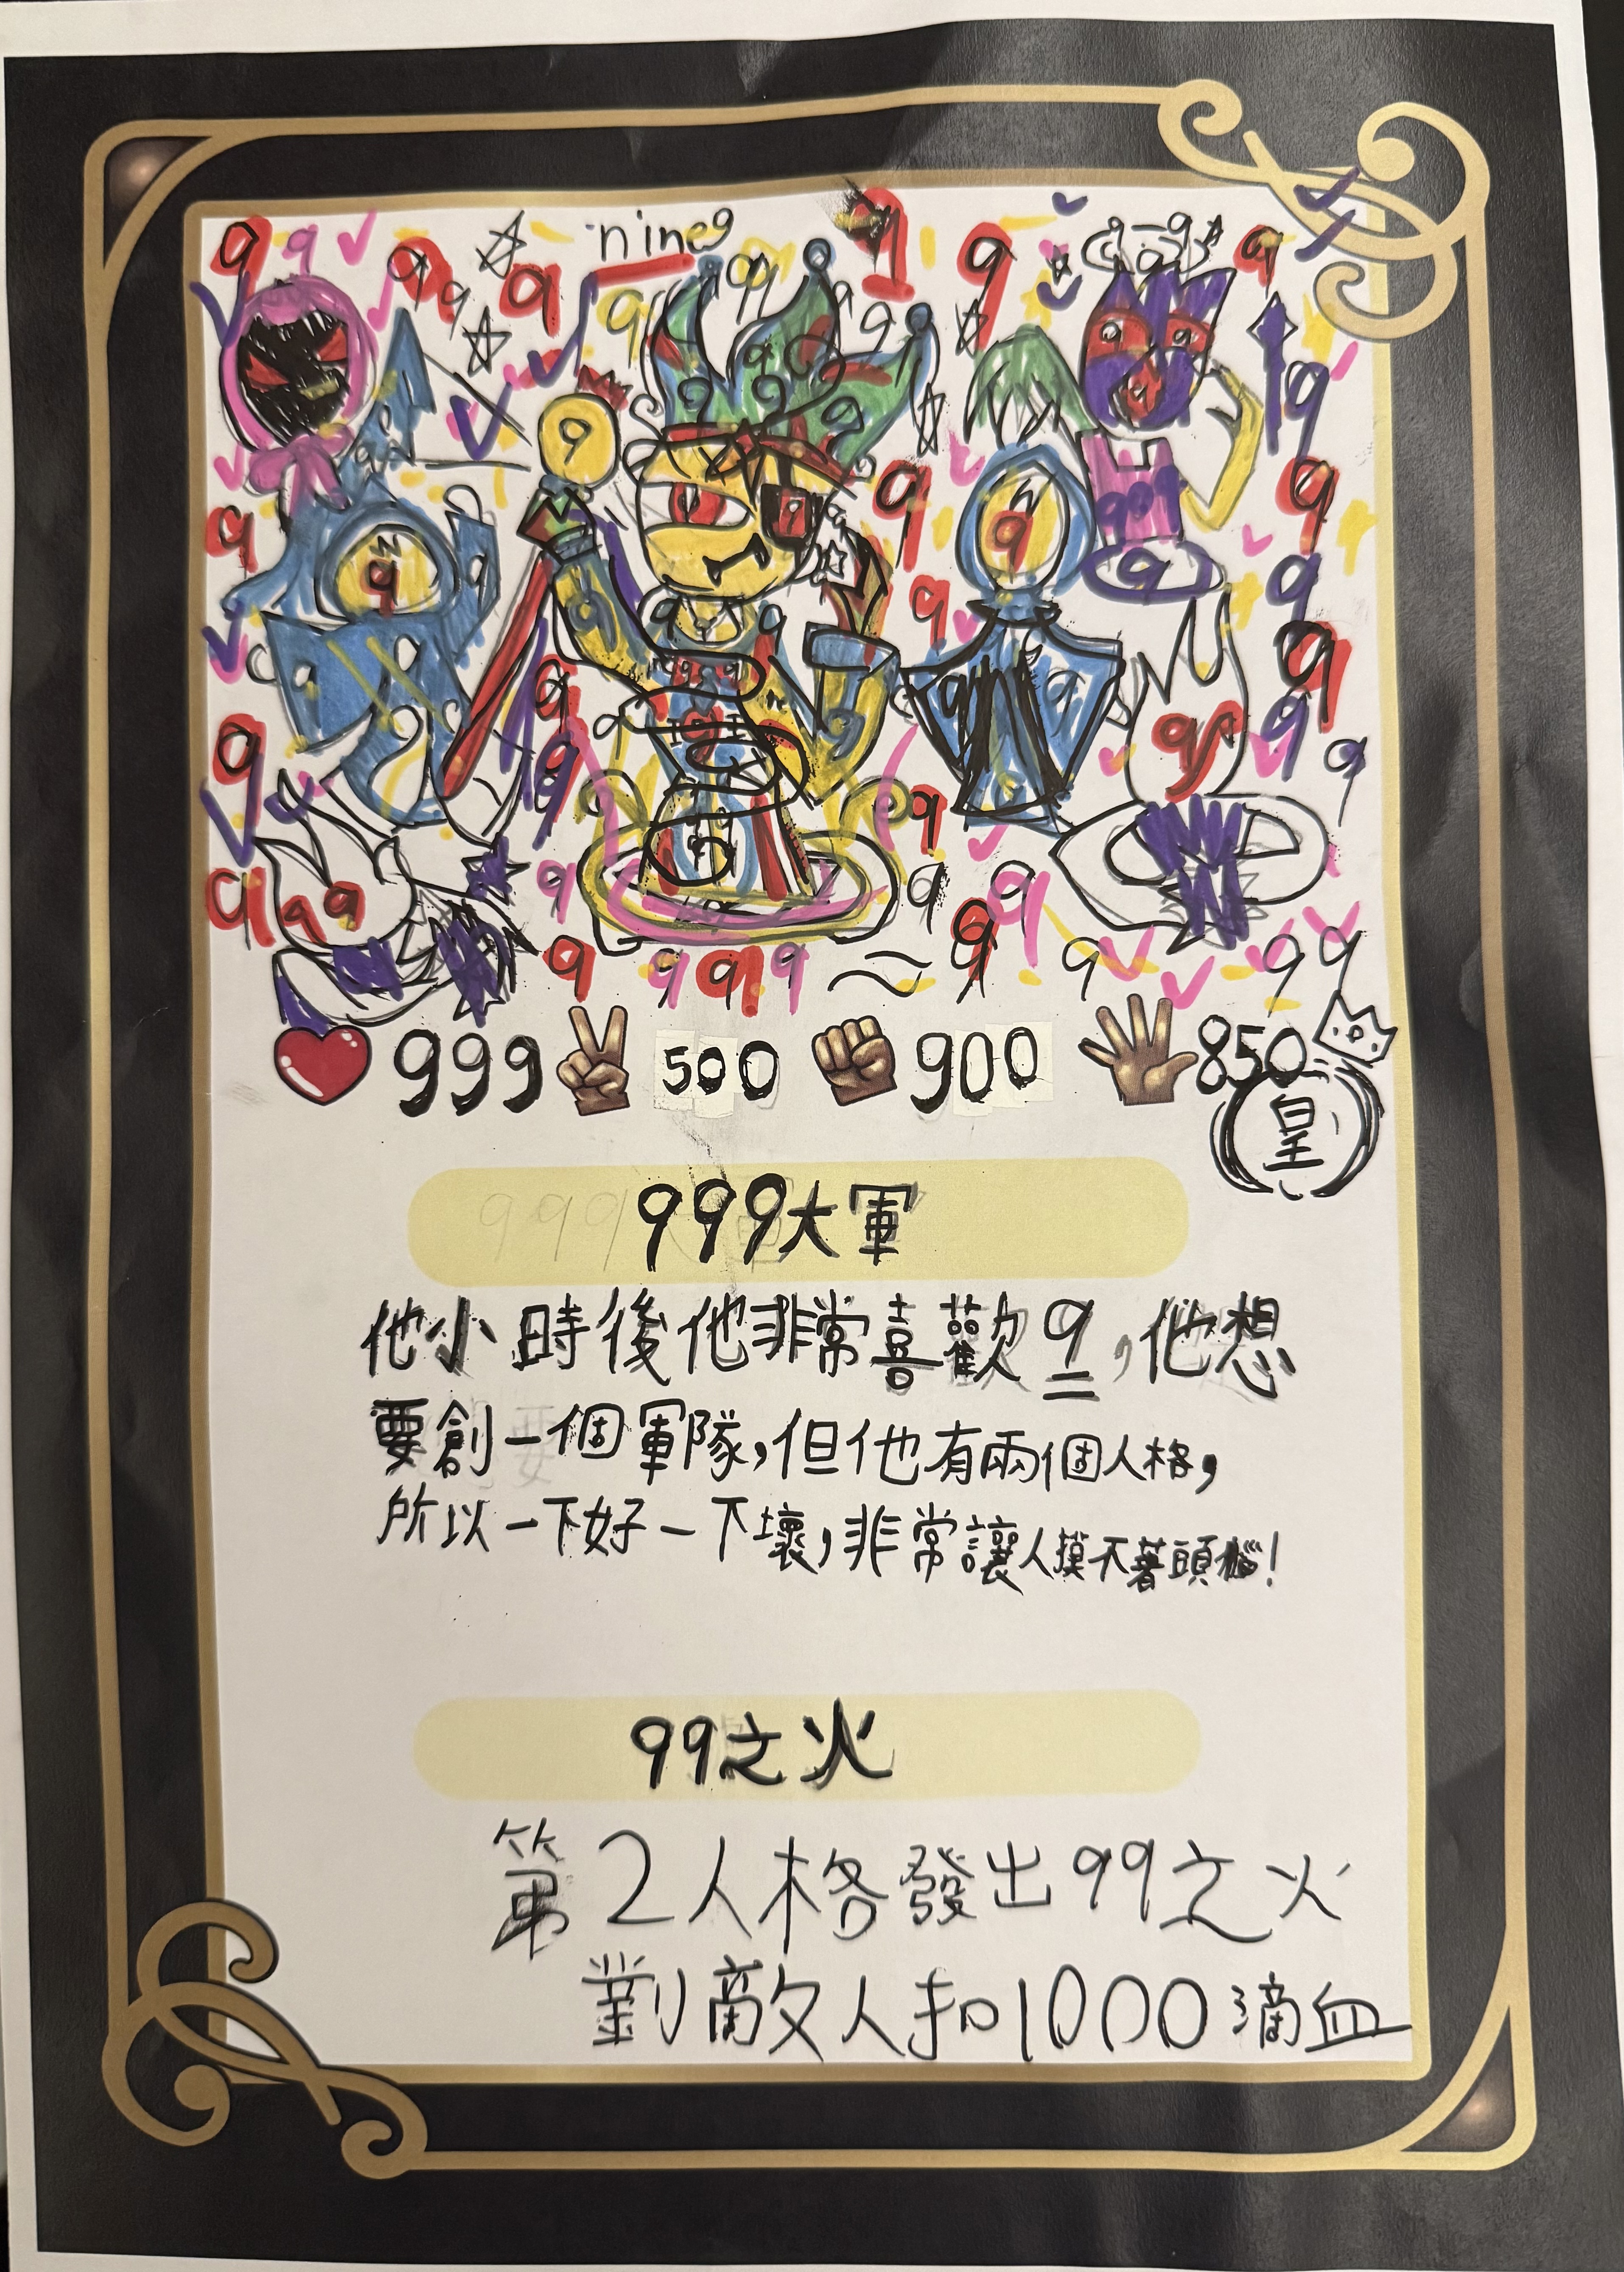 nine9
999 500 900 850
皇
999大軍
他小時後他非常喜歡9,他想
要創一個軍隊,但他有兩個人格,
所以一下好一下壞,非常讓人摸不著頭腦!
99之火
第2人格發出99之火
對敵人扣1000滴血